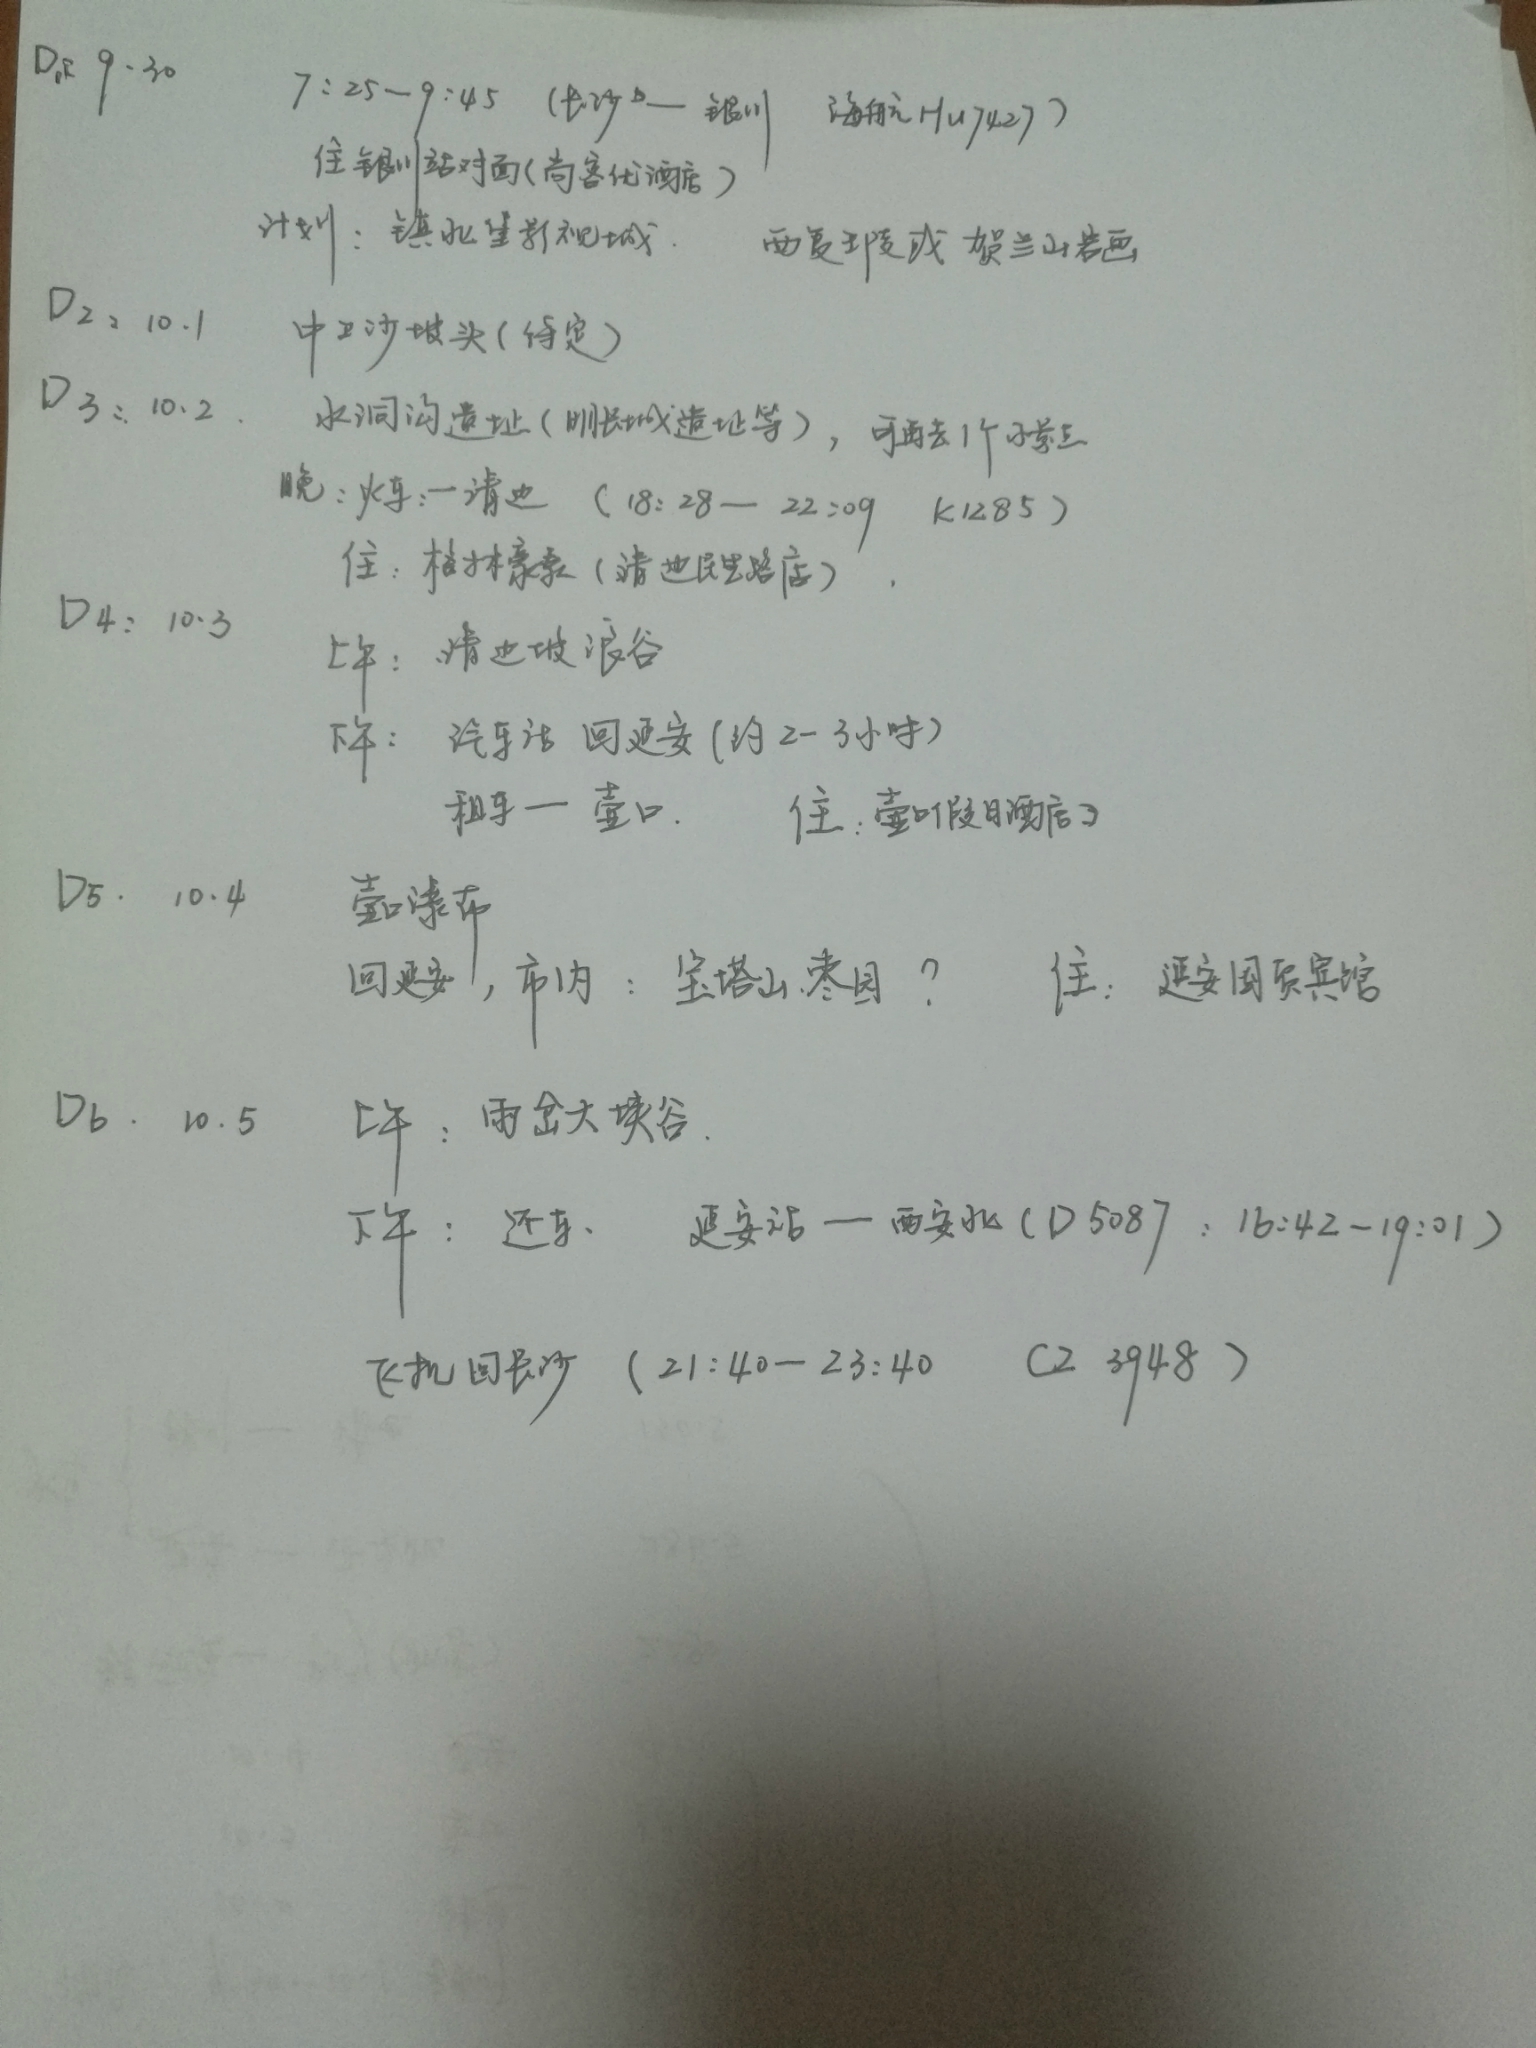 D1 9.30 7:25—9:45 (长沙—银川 海航HU7427)
住银川站对面(尚客优酒店)
计划: 镇北堡影视城. 西夏王陵或 贺兰山岩画
D2: 10.1 中卫沙坡头(待定)
D3: 10.2. 水洞沟遗址(明长城遗址等), 可再去1个小景点
晚: 火车:—靖边 (18:28—22:09 K1285)
住: 榆林豪泰(靖边民生路店).
D4: 10.3
上午: 靖边波浪谷
下午: 汽车站 回延安(约2-3小时)
租车— 壶口. 住: 壶口假日酒店
D5. 10.4 壶口瀑布
回延安, 市内: 宝塔山、枣园? 住: 延安国贸宾馆
D6. 10.5 上午: 雨岔大峡谷.
下午: 还车、 延安站—西安北(D5087: 16:42-19:01)
飞机回长沙 (21:40—23:40 CZ 3948)